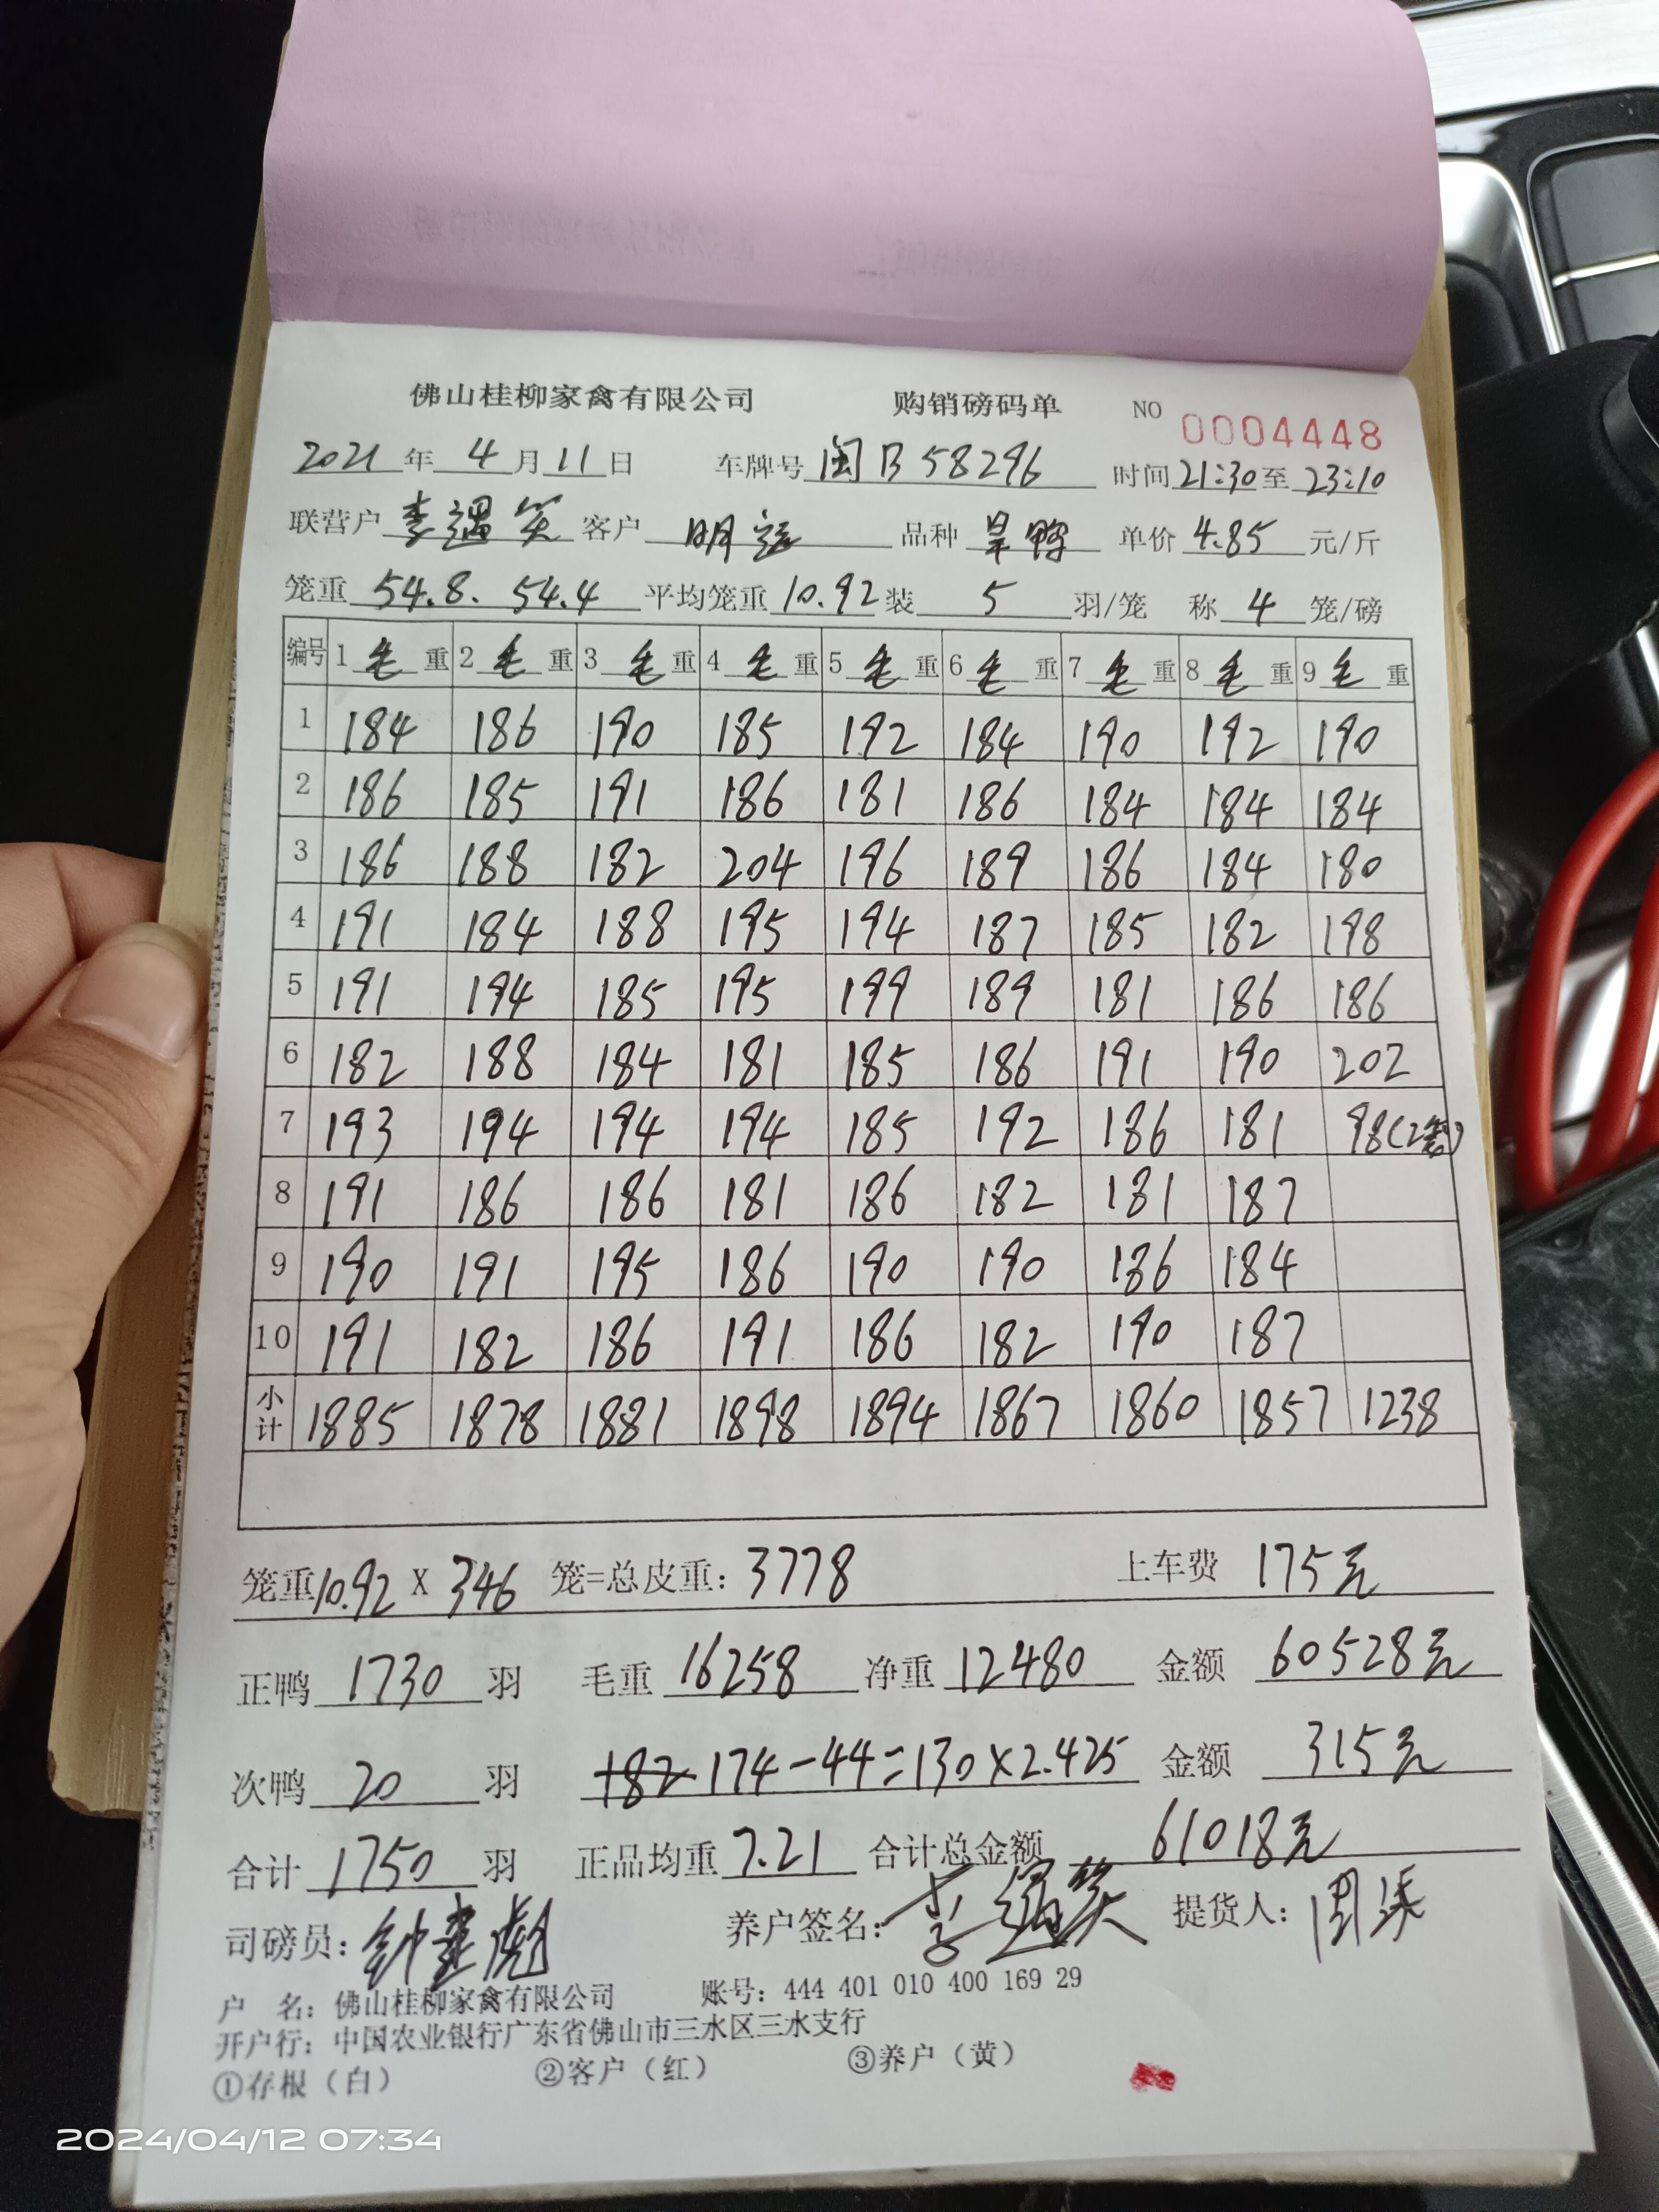 佛山桂柳家禽有限公司 购销磅码单 NO 0004448
2021年4月11日 车牌号 闽B58296 时间21:30至23:10
联营户 李遇笑 客户 明 品种 旱鸭 单价 4.85 元/斤
笼重 54.8. 54.4 平均笼重 10.92 装 5 羽/笼 称 4 笼/磅
编号 1 毛 重 2 毛 重 3 毛 重 4 毛 重 5 毛 重 6 毛 重 7 毛 重 8 毛 重 9 毛 重
1 184 186 190 185 192 184 190 192 190
2 186 185 191 186 181 186 184 184 184
3 186 188 182 204 196 189 186 184 180
4 191 184 188 195 194 187 185 182 198
5 191 194 185 195 199 189 181 186 186
6 182 188 184 181 185 186 191 190 202
7 193 194 194 194 185 192 186 181 98(2笼)
8 191 186 186 181 186 182 181 187
9 190 191 195 186 190 190 186 184
10 191 182 186 191 186 182 190 187
小计 1885 1878 1881 1898 1894 1867 1860 1857 1238
笼重10.92 X 346 笼=总皮重: 3778 上车费 175元
正鸭 1730 羽 毛重 16258 净重 12480 金额 60528元
次鸭 20 羽 182 174-44=130×2.425 金额 315元
合计 1750 羽 正品均重 7.21 合计总金额 61018元
司磅员: 钟建彪 养户签名: 李遇笑 提货人: 周
户 名: 佛山桂柳家禽有限公司 账号: 444 401 010 400 169 29
开户行: 中国农业银行广东省佛山市三水区三水支行
①存根（白） ②客户（红） ③养户（黄）
2024/04/12 07:34